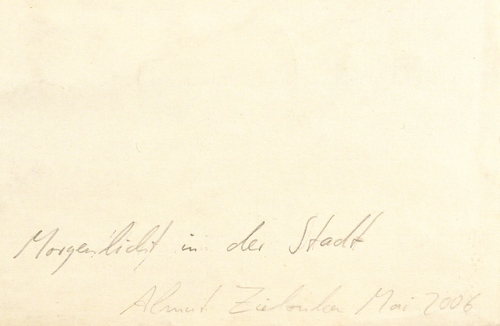 Morgenlicht in der Stadt
Almut Mai 2006